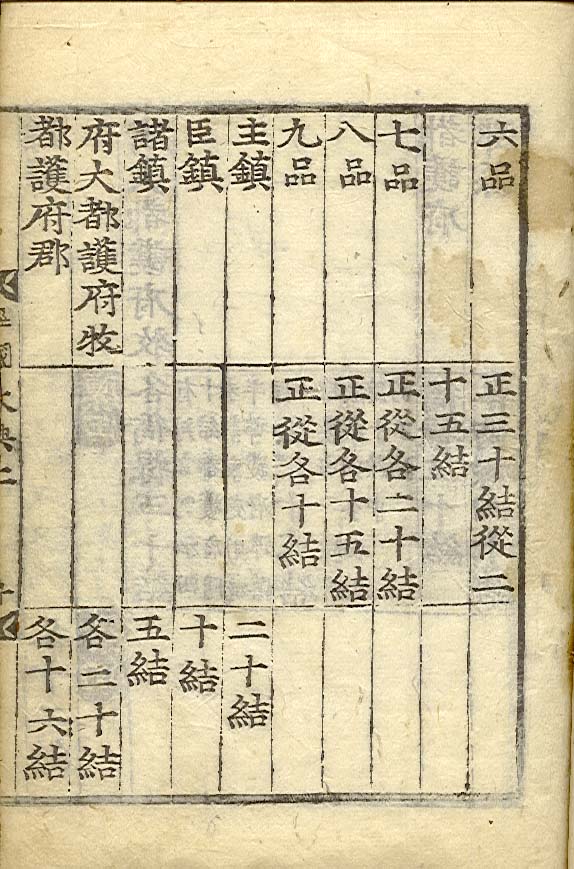 六品 正三十結從二
十五結
七品 正從各二十結
八品 正從各十五結
九品 正從各十結
主鎮 二十結
臣鎮 十結
諸鎮 五結
府大都護府牧 各二十結
都護府郡 各十六結
國大典二